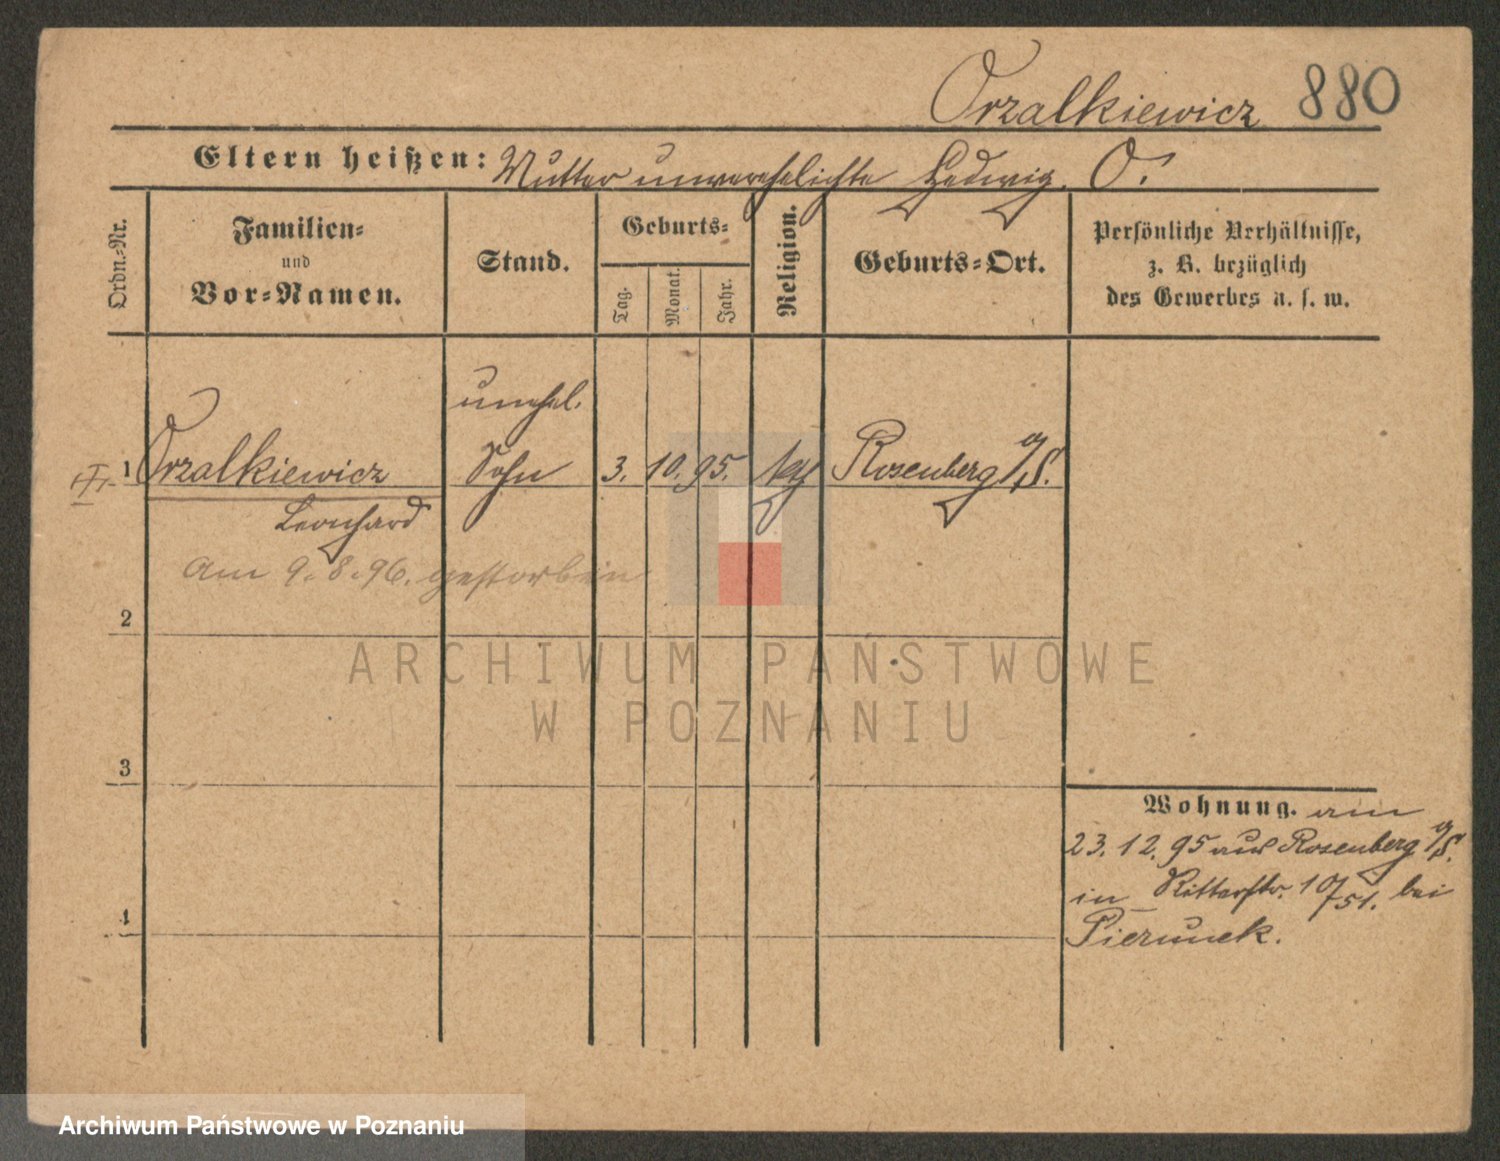 Orzalkiewicz 880
Eltern heißen: Mutter unverehelichte Hedwig O.
Ordn.-Nr.
Familien-
und
Vor-Namen.
Stand.
Geburts-
Tag.
Monat.
Jahr.
Religion.
Geburts-Ort.
Persönliche Verhältnisse,
z. B. bezüglich
des Gewerbes u. s. w.
unehel.
1 Orzalkiewicz Sohn 3. 10. 95. kth Rosenberg O/S.
Leonhard
am 9.8.96. gestorben
2
3
4
Wohnung. am
23.12.95 aus Rosenberg O/S.
in Ritterstr. 10/51. bei
Pierunek.
ARCHIWUM PAŃSTWOWE
W POZNANIU
Archiwum Państwowe w Poznaniu